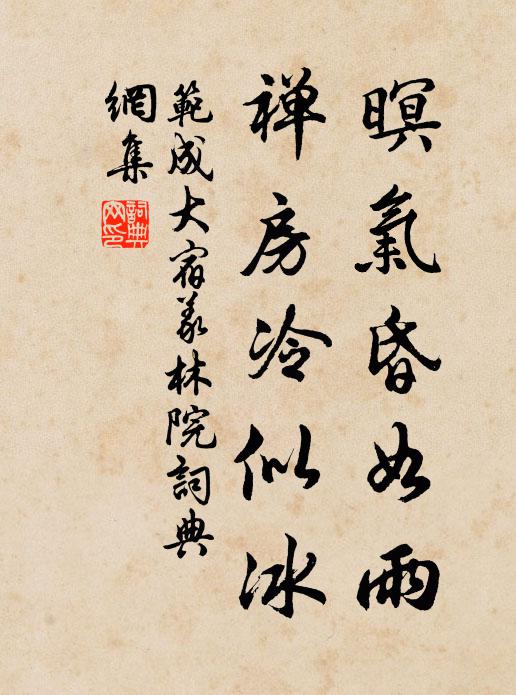 暝氣昏如雨
禅房冷似冰
範成大宿義林院詞典
網集
詞典
網印